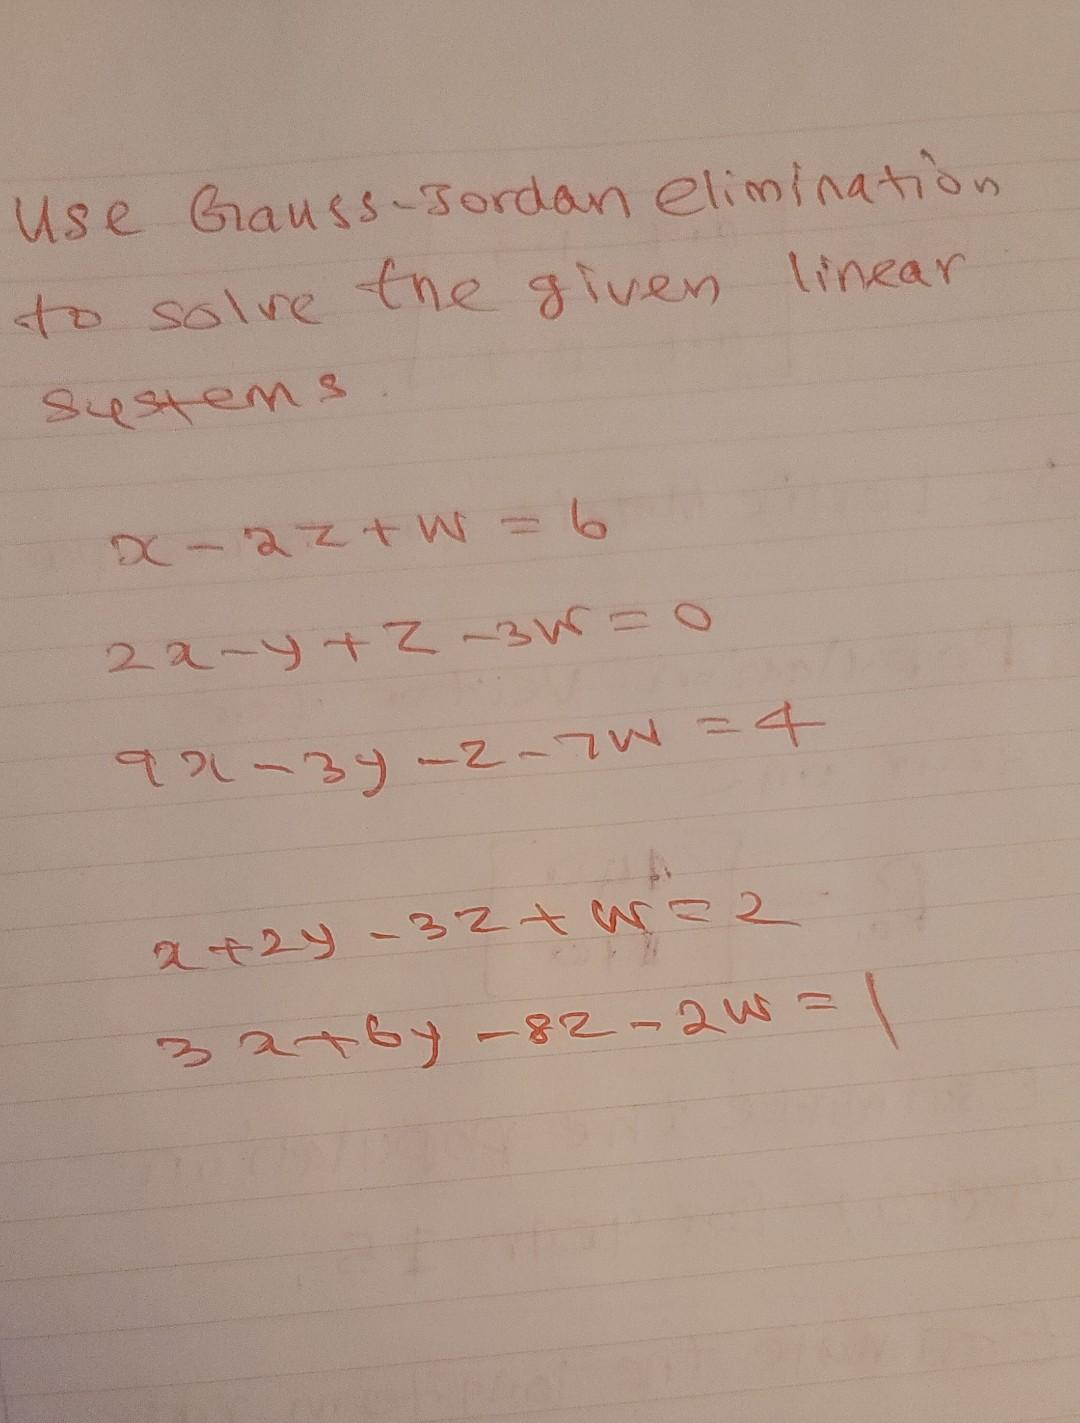 Use Gauss-Jordan elimination
to solve the given linear
systems.
x - 2z + w = 6
2x - y + z - 3w = 0
9x - 3y - z - 7w = 4
x + 2y - 3z + w = 2
3x + 6y - 8z - 2w = 1